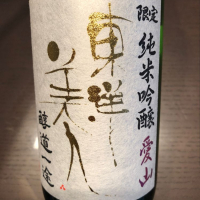 限定 純米吟醸 愛山
東洋美人
醇道一途